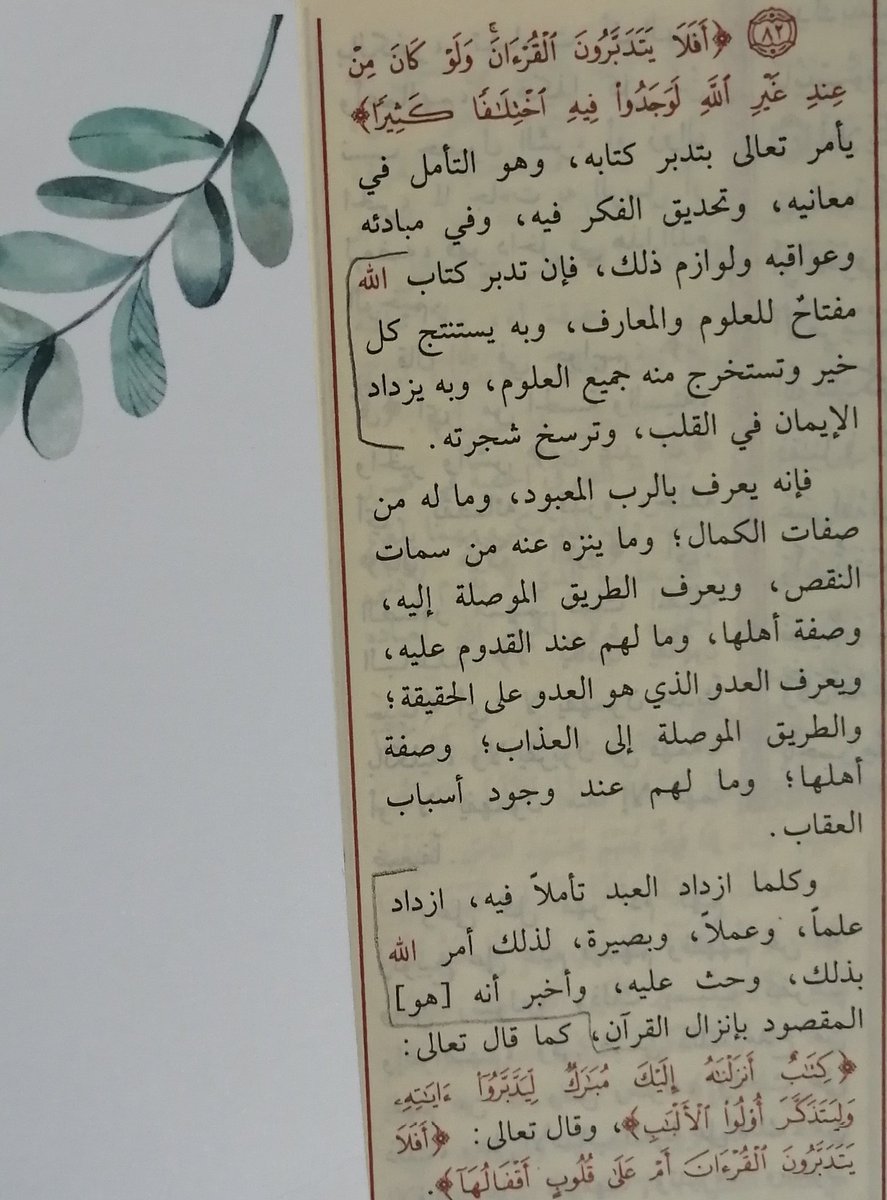 ﴿٨٢﴾ ﴿أَفَلَا يَتَدَبَّرُونَ ٱلْقُرْءَانَۚ وَلَوْ كَانَ مِنْ
عِندِ غَيْرِ ٱللَّهِ لَوَجَدُوا۟ فِيهِ ٱخْتِلَٰفًا كَثِيرًا﴾
يأمر تعالى بتدبر كتابه، وهو التأمل في
معانيه، وتحديق الفكر فيه، وفي مبادئه
وعواقبه ولوازم ذلك، فإن تدبر كتاب الله
مفتاحٌ للعلوم والمعارف، وبه يستنتج كل
خير وتستخرج منه جميع العلوم، وبه يزداد
الإيمان في القلب، وترسخ شجرته.
فإنه يعرف بالرب المعبود، وما له من
صفات الكمال؛ وما ينزه عنه من سمات
النقص، ويعرف الطريق الموصلة إليه،
وصفة أهلها، وما لهم عند القدوم عليه،
ويعرف العدو الذي هو العدو على الحقيقة؛
والطريق الموصلة إلى العذاب؛ وصفة
أهلها؛ وما لهم عند وجود أسباب
العقاب.
وكلما ازداد العبد تأملاً فيه، ازداد
علماً، وعملاً، وبصيرة، لذلك أمر الله
بذلك، وحث عليه، وأخبر أنه [هو]
المقصود بإنزال القرآن، كما قال تعالى:
﴿كِتَٰبٌ أَنزَلْنَٰهُ إِلَيْكَ مُبَٰرَكٌ لِّيَدَّبَّرُوٓا۟ ءَايَٰتِهِۦ
وَلِيَتَذَكَّرَ أُو۟لُوا۟ ٱلْأَلْبَٰبِ﴾، وقال تعالى: ﴿أَفَلَا
يَتَدَبَّرُونَ ٱلْقُرْءَانَ أَمْ عَلَىٰ قُلُوبٍ أَقْفَالُهَآ﴾.